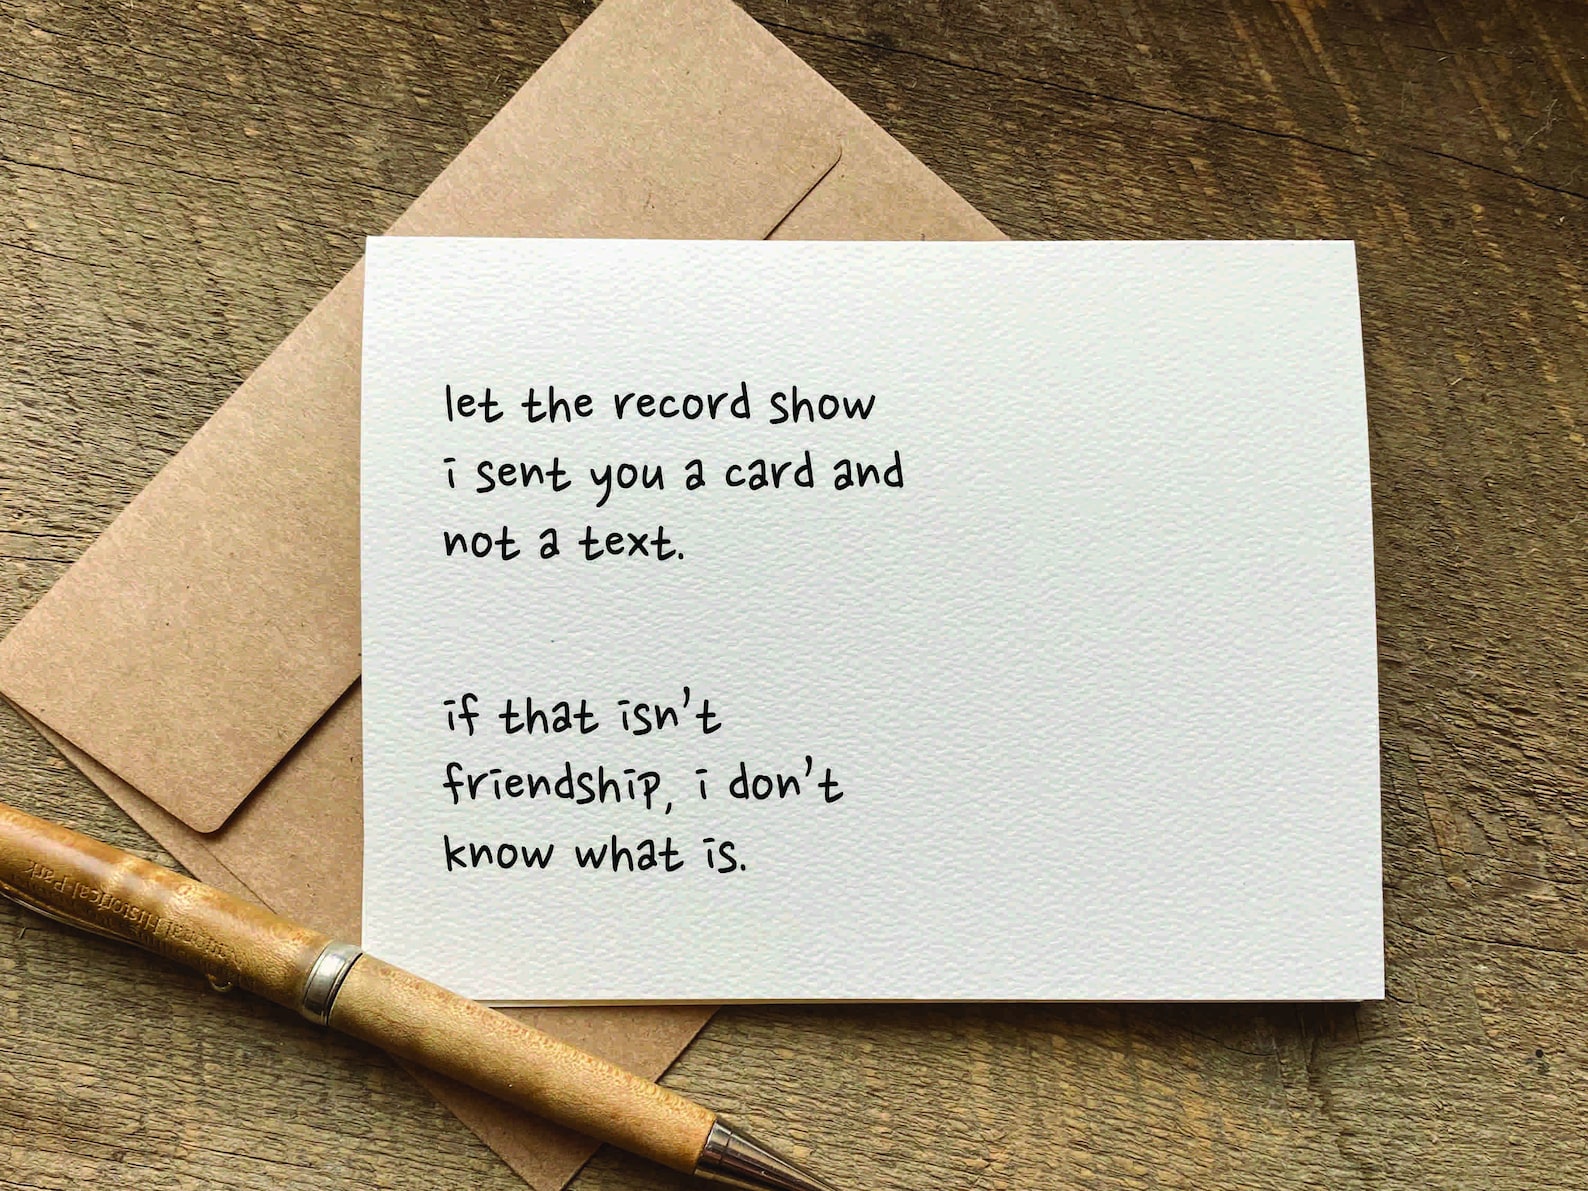 let the record show
i sent you a card and
not a text.
if that isn't
friendship, i don't
know what is.
Historical Park